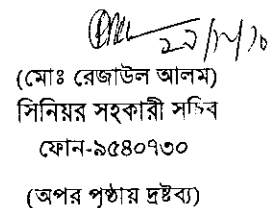 (মোঃ রেজাউল আলম)
সিনিয়র সহকারী সচিব
ফোন-৯৫৪০৭৩০
(অপর পৃষ্ঠায় দ্রষ্টব্য)